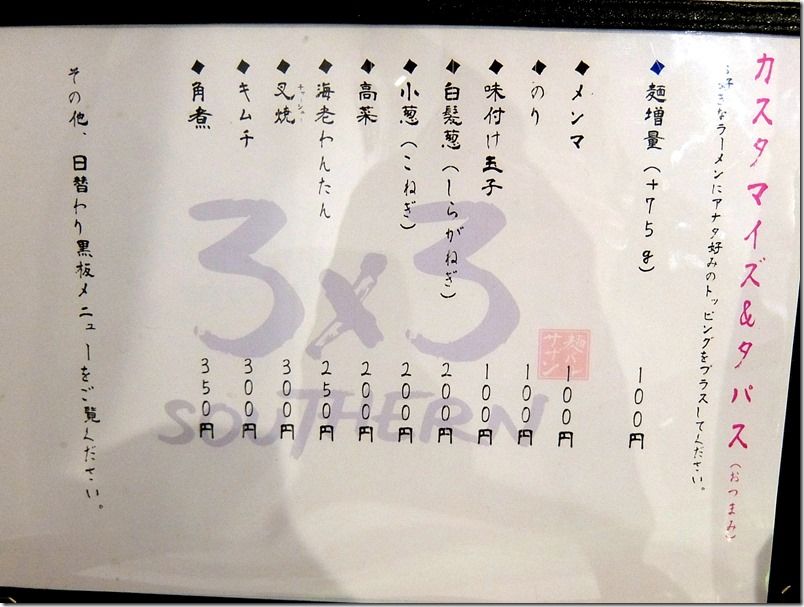 カスタマイズ&タパス(おつまみ)
お好きなラーメンにアナタ好みのトッピングをプラスしてください。
◆麺増量(+75g) 100円
◆メンマ 100円
◆のり 100円
◆味付け玉子 100円
◆白髪葱(しらがねぎ) 200円
◆小葱(こねぎ) 200円
◆高菜 200円
◆海老わんたん 250円
◆叉焼 300円
チャーシュー
◆キムチ 300円
◆角煮 350円
その他、日替わり黒板メニューをご覧ください。
3x3
SOUTHERN
麺バル
ササン